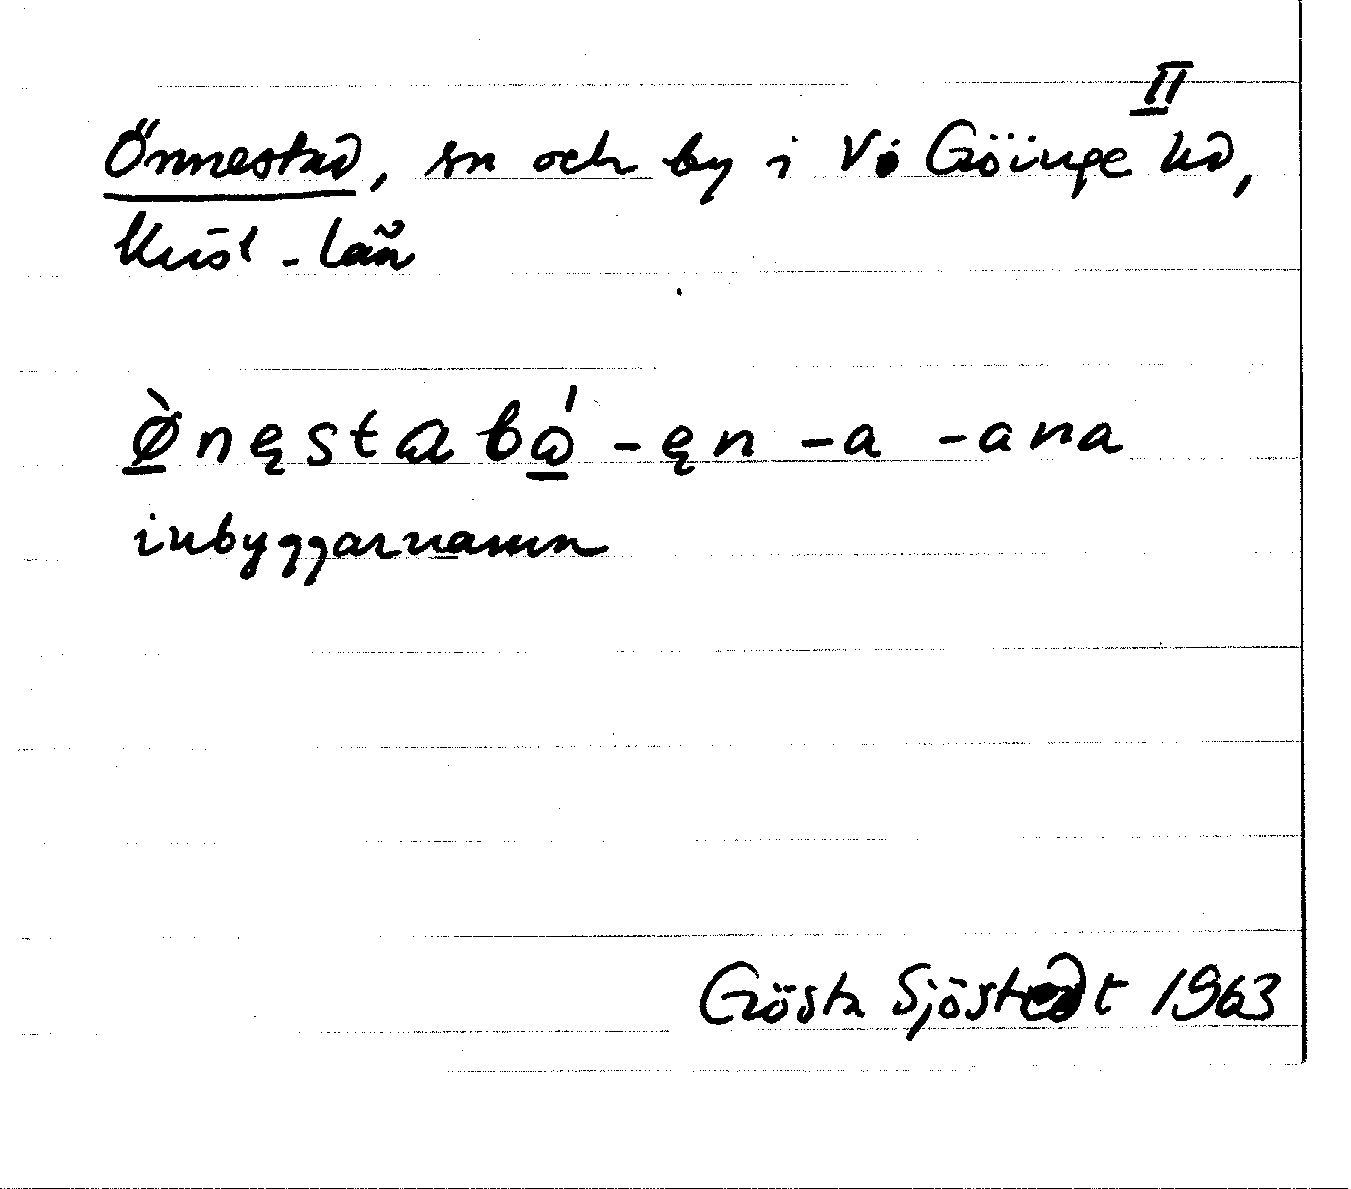 II
Önnestad, sn och by i V. Göinge hd,
Krist-län
Ø̀nęstabɷ́ -ęn -a -ana
inbyggarnamn
Gösta Sjöstedt 1963